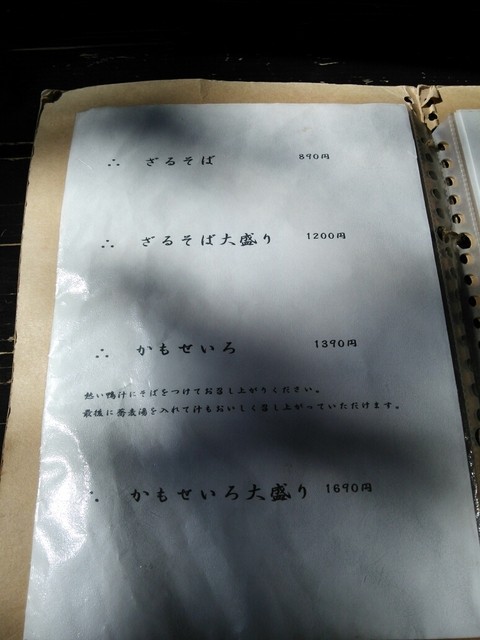 ∴ ざるそば 890円
∴ ざるそば大盛り 1200円
∴ かもせいろ 1390円
熱い鴨汁にそばをつけてお召し上がりください。
最後に蕎麦湯を入れて汁もおいしく召し上がっていただけます。
∴ かもせいろ大盛り 1690円